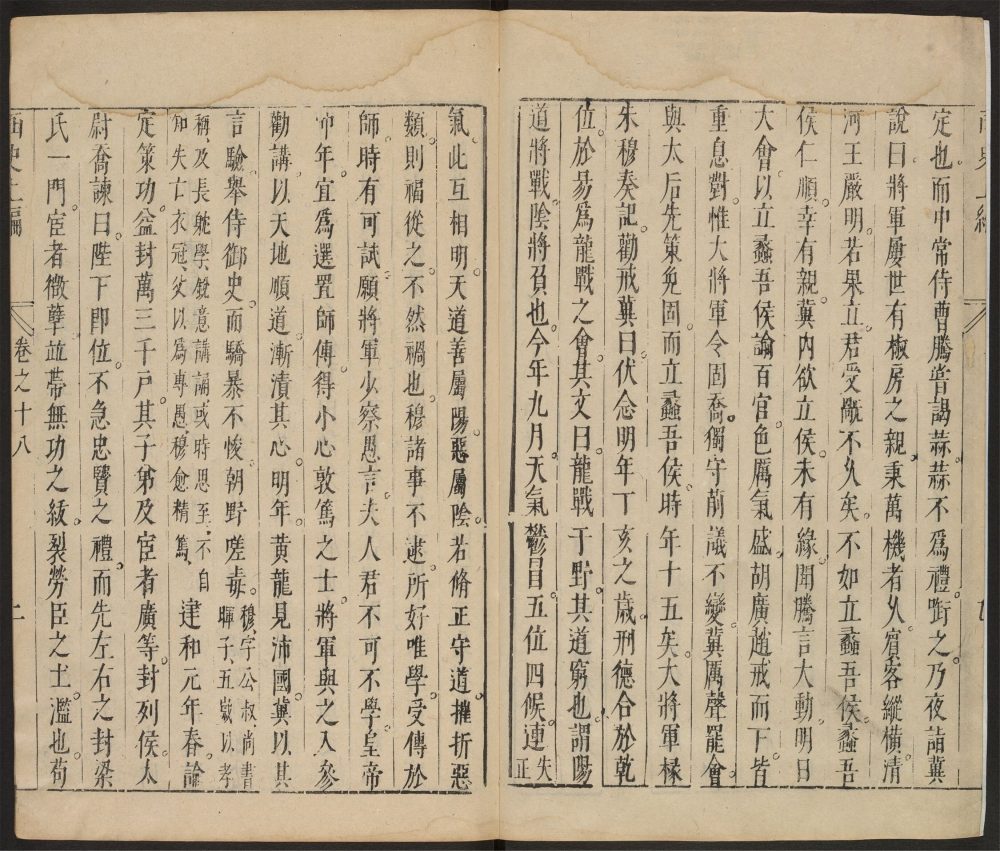 定也而中常侍曹騰嘗謁蒜蒜不爲禮銜之乃夜詣冀
說曰將軍屢世有椒房之親秉萬機者乆賓客縱橫清
河王嚴明若果立君受旤不乆矣不如立蠡吾侯蠡吾
侯仁順幸有親冀内欲立侯未有緣聞騰言大動明日
大會以立蠡吾侯諭百官色厲氣盛胡廣趙戒而下皆
重息對惟大將軍令固喬獨守前議不變冀厲聲罷會
與太后先策免固而立蠡吾侯時年十五矣大將軍掾
朱穆奏記勸戒冀曰伏念明年丁亥之歲刑德合於乾
位於昜爲龍戰之會其文曰龍戰于野其道窮也謂陽
道將戰陰將負也今年九月天氣鬱冒五位四候連失正
氣此互相明天道善屬陽惡屬陰若脩正守道摧折惡
類則福從之不然禍也穆諸事不逮所好唯學受傳於
師時有可試願將軍少察愚言夫人君不可不學皇帝
冲年宜爲選置師傳得小心敦篤之士將軍與之入參
勸講以天地順道漸漬其心明年黃龍見沛國冀以其
言驗舉侍御史而驕暴不悛朝野嗟毒穆字公叔尚書暉子五歲以孝
稱及長躭學銳意講誦或時思至不自知失亡衣冠父以爲專愚穆愈精篤建和元年春論
定策功益封萬三千戸其子弟及宦者廣等封列侯太
尉喬諫曰陛下即位不急忠賢之禮而先左右之封梁
氏一門宦者微孽竝帶無功之紱裂勞臣之土濫也苟
卷之十八
二